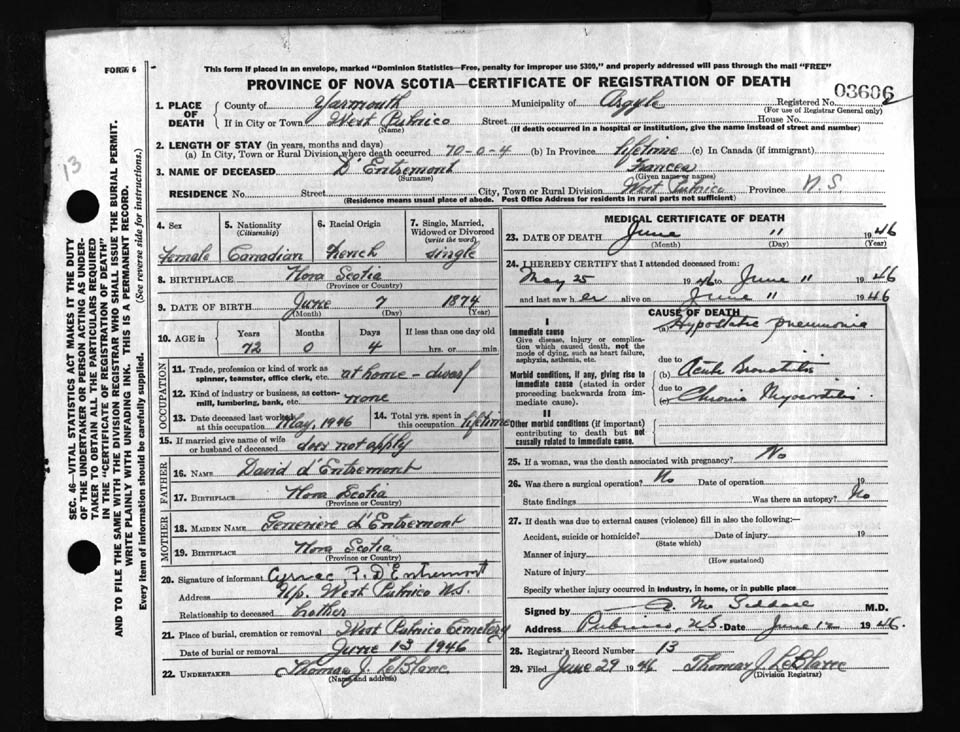 FORM 6
This form if placed in an envelope, marked "Dominion Statistics—Free, penalty for improper use $300," and properly addressed will pass through the mail "FREE"
PROVINCE OF NOVA SCOTIA—CERTIFICATE OF REGISTRATION OF DEATH
03606
1. PLACE OF DEATH County of Yarmouth Municipality of Argyle Registered No.
(For use of Registrar General only)
If in City or Town West Pubnico Street House No.
(Name) (If death occurred in a hospital or institution, give the name instead of street and number)
2. LENGTH OF STAY (in years, months and days)
(a) In City, Town or Rural Division where death occurred 70-0-4 (b) In Province lifetime (c) In Canada (if immigrant)
3. NAME OF DECEASED D'Entremont Frances
(Surname) (Given name or names)
RESIDENCE No. Street City, Town or Rural Division West Pubnico Province N.S.
(Residence means usual place of abode. Post Office Address for residents in rural parts not sufficient)
4. Sex Female
5. Nationality (Citizenship) Canadian
6. Racial Origin French
7. Single, Married, Widowed or Divorced (write the word) Single
8. BIRTHPLACE Nova Scotia
(Province or Country)
9. DATE OF BIRTH June 7 1874
(Month) (Day) (Year)
10. AGE in Years Months Days If less than one day old
72 0 4 hrs. or min.
OCCUPATION
11. Trade, profession or kind of work as spinner, teamster, office clerk, etc. at home - dwarf
12. Kind of industry or business, as cotton-mill, lumbering, bank, etc. none
13. Date deceased last worked at this occupation May, 1946
14. Total yrs. spent in this occupation lifetime
15. If married give name of wife or husband of deceased does not apply
FATHER
16. NAME David d'Entremont
17. BIRTHPLACE Nova Scotia
(Province or Country)
MOTHER
18. MAIDEN NAME Genevieve d'Entremont
19. BIRTHPLACE Nova Scotia
(Province or Country)
20. Signature of informant Cyriac P. D'Entremont
Address West Pubnico N.S.
Relationship to deceased brother
21. Place of burial, cremation or removal West Pubnico Cemetery
Date of burial or removal June 13 1946
22. UNDERTAKER Thomas J. LeBlanc
(Name and address)
MEDICAL CERTIFICATE OF DEATH
23. DATE OF DEATH June 11 1946
(Month) (Day) (Year)
24. I HEREBY CERTIFY that I attended deceased from:
May 25 1946 to June 11 1946
and last saw her alive on June 11 1946
CAUSE OF DEATH
I
Immediate cause
Give disease, injury or complication which caused death, not the mode of dying, such as heart failure, asphyxia, asthenia, etc.
(a) Hypostatic pneumonia
due to
Morbid conditions, if any, giving rise to immediate cause (stated in order proceeding backwards from immediate cause).
(b) Acute Bronchitis
due to
(c) Chronic Myocarditis
II
Other morbid conditions (if important) contributing to death but not causally related to immediate cause.
25. If a woman, was the death associated with pregnancy? No
26. Was there a surgical operation? No Date of operation 19
State findings Was there an autopsy? No
27. If death was due to external causes (violence) fill in also the following:—
Accident, suicide or homicide? Date of injury 19
(State which)
Manner of injury
(How sustained)
Nature of injury
Specify whether injury occurred in industry, in home, or in public place
Signed by M.D.
Address Pubnico, N.S. Date June 12 1946.
28. Registrar's Record Number 13
29. Filed June 29 1946 Thomas J. LeBlanc
(Division Registrar)
13
SEC. 46—VITAL STATISTICS ACT MAKES IT THE DUTY OF THE UNDERTAKER OR PERSON ACTING AS UNDERTAKER TO OBTAIN ALL THE PARTICULARS REQUIRED IN THE "CERTIFICATE OF REGISTRATION OF DEATH" AND TO FILE THE SAME WITH THE DIVISION REGISTRAR WHO SHALL ISSUE THE BURIAL PERMIT.
WRITE PLAINLY WITH UNFADING INK. THIS IS A PERMANENT RECORD.
Every item of Information should be carefully supplied. (See reverse side for instructions.)